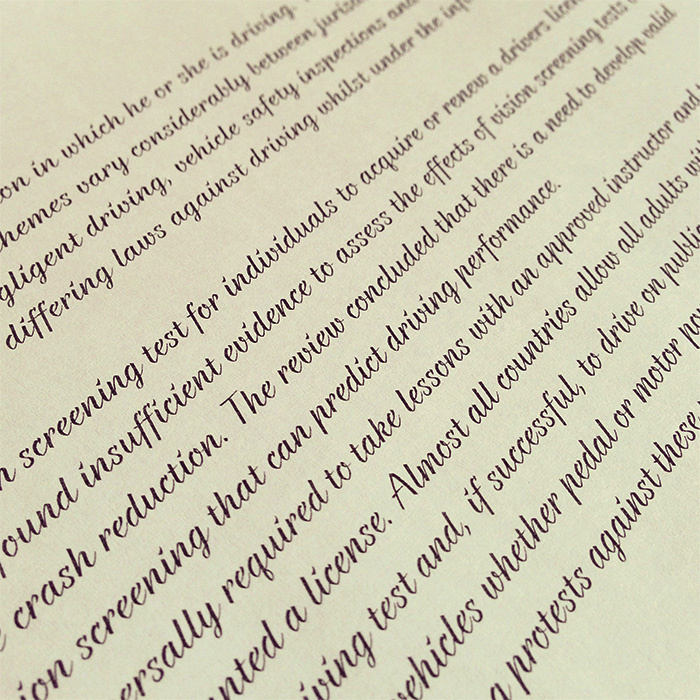 on in which he or she is driving.
hemes vary considerably between
gligent driving, vehicle safety inspections and
differing laws against driving whilst under the
screening test for individuals to acquire or renew a drivers
ound insufficient evidence to assess the effects of vision screening tests
crash reduction. The review concluded that there is a need to develop valid
ion screening that can predict driving performance.
ersally required to take lessons with an approved instructor and
nted a license. Almost all countries allow all adults
iving test and, if successful, to drive on
vehicles whether pedal or motor
protests against these